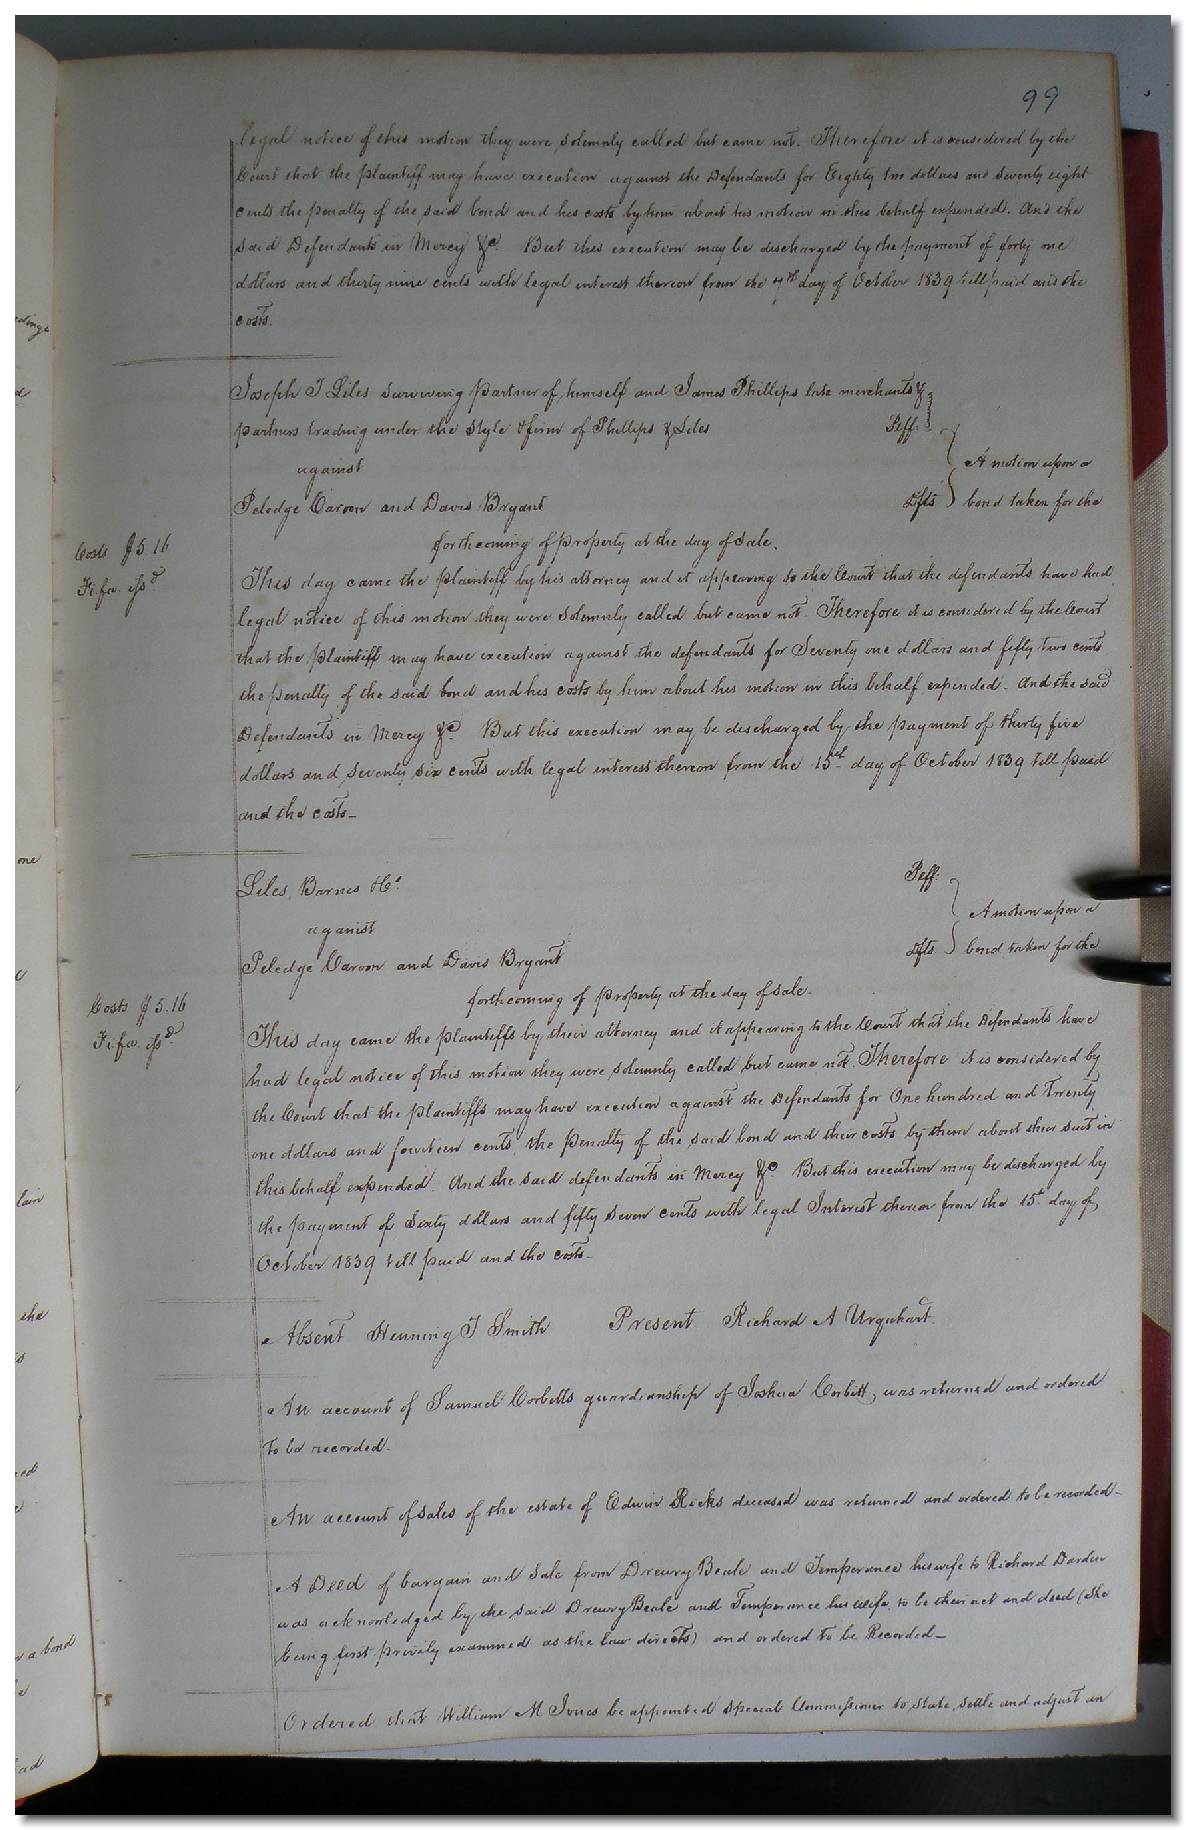 99
legal notice of this motion they were solemnly called but came not. Therefore it is considered by the
Court that the plaintiff may have execution against the Defendants for Eighty two dollars and seventy eight
cents the penalty of the said bond and his costs by him about his motion in this behalf expended. And the
said Defendants in Mercy &c. But this execution may be discharged by the payment of forty one
dollars and thirty nine cents with legal interest thereon from the 7th day of October 1839 till paid and the
costs.
Joseph T Liles surviving partner of himself and James Phillips late merchants &
partners trading under the style & firm of Phillips & Liles Peff.
against A motion upon a
Peledge Caroon and Davis Bryant Dfts bond taken for the
forthcoming of property at the day of sale.
Costs $5.16
Fi. fa. issd.
This day came the plaintiff by his attorney and it appearing to the Court that the defendants have had
legal notice of this motion they were solemnly called but came not. Therefore it is considered by the Court
that the plaintiff may have execution against the defendants for Seventy one dollars and fifty two cents
the penalty of the said bond and his costs by him about his motion in this behalf expended. And the said
Defendants in Mercy &c. But this execution may be discharged by the payment of thirty five
dollars and seventy six cents with legal interest thereon from the 15th day of October 1839 till paid
and the costs–
Liles, Barnes & Co. Peff.
against A motion upon a
Peledge Caroon and Davis Bryant Dfts bond taken for the
forthcoming of property at the day of sale–
Costs $5.16
Fi. fa. issd.
This day came the plaintiffs by their attorney and it appearing to the Court that the Defendants have
had legal notice of this motion they were solemnly called but came not. Therefore it is considered by
the Court that the plaintiffs may have execution against the Defendants for One hundred and twenty
one dollars and fourteen cents, the penalty of the said bond and their costs by them about their suit in
this behalf expended. And the said defendants in Mercy &c. But this execution may be discharged by
the payment of Sixty dollars and fifty seven cents with legal Interest thereon from the 15th day of
October 1839 till paid and the costs–
Absent Henning T Smith Present Richard A Urquhart.
An account of Samuel Corbetts guardianship of Joshua Corbett, was returned and ordered
to be recorded.
An account of sales of the estate of Edwin Ricks deceased was returned and ordered to be recorded–
A Deed of bargain and sale from Drewry Beale and Temperance his wife to Richard Darden
was acknowledged by the said Drewry Beale and Temperance his wife, to be their act and deed (she
being first privily examined as the law directs) and ordered to be Recorded–
Ordered that William M Jones be appointed special Commissioner to state, settle and adjust an